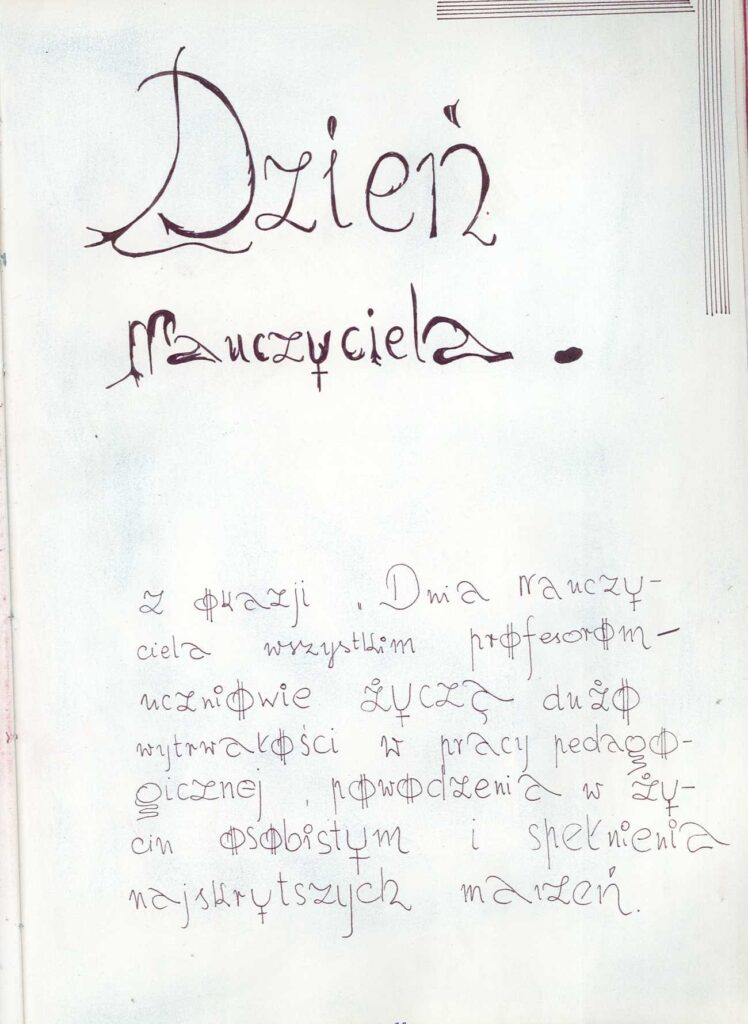 Dzień
Nauczyciela.
Z okazji , Dnia Nauczy-
ciela wszystkim profesorom -
uczniowie życzą dużo
wytrwałości w pracy pedago-
gicznej , powodzenia w ży-
ciu osobistym i spełnienia
najskrytszych marzeń.